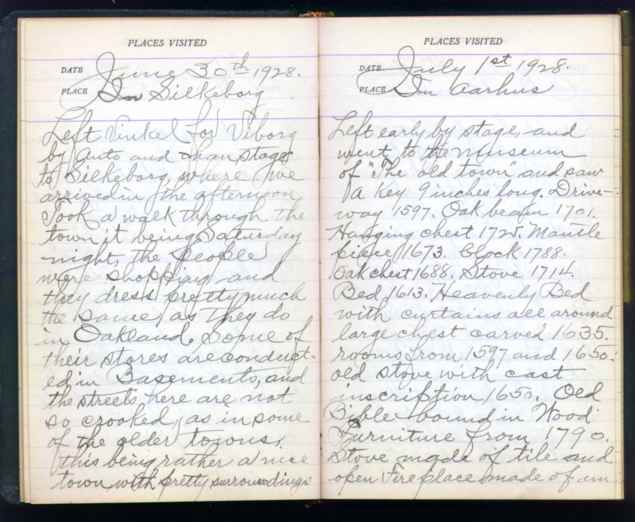 PLACES VISITED
DATE June 30th 1928.
PLACE In Silkeborg
Left Vinkel for Viborg
by Auto and then stage
to Silkeborg, where we
arrived in the afternoon
Took a walk through the
town it being Saturday
night, the people
were shopping and
they dress pretty much
the same as they do
in Oakland, some of
their stores are conduct-
ed in Basements, and
the streets here are not
so crooked, as in some
of the older towns,
this being rather a nice
town with pretty surroundings
PLACES VISITED
DATE July 1st 1928.
PLACE In Aarhus
Left early by stage, and
went to the Museum
of "The old town" and saw
a key 9 inches long. Drive-
way 1597. Oak beam 1701.
Hanging chest 1725. Mantle
piece 1673. Clock 1788.
Oak chest 1688. Stove 1714.
Bed 1613. Heavenly Bed
with curtains all around
large chest carved 1635.
rooms from 1597 and 1650.
old stove with cast
inscription 1650. Old
Bible bound in Wood
Furniture from 1790.
Stove made of tile and
open Fire place made of